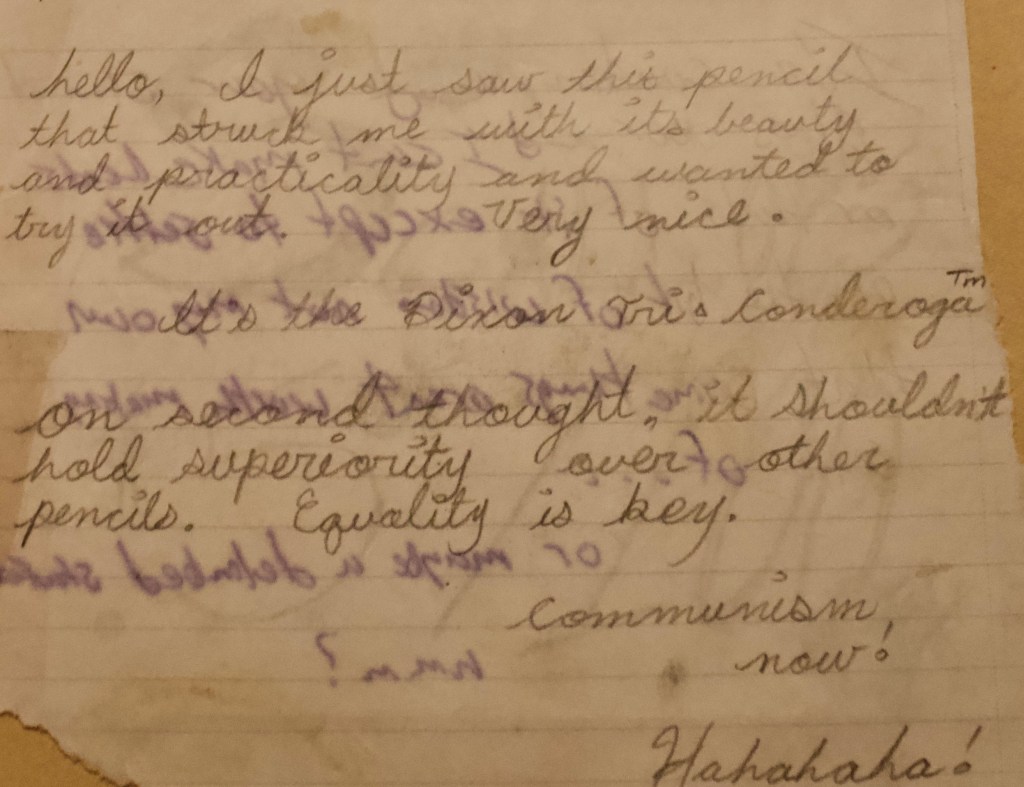 hello, I just saw this pencil
that struck me with its beauty
and practicality and wanted to
try it out. Very nice.
It's the Dixon Tri. Conderoga™
on second thought, it shouldn't
hold superiority over other
pencils. Equality is key.
Communism,
now!
Hahahaha!
except
or maybe a
hmm?